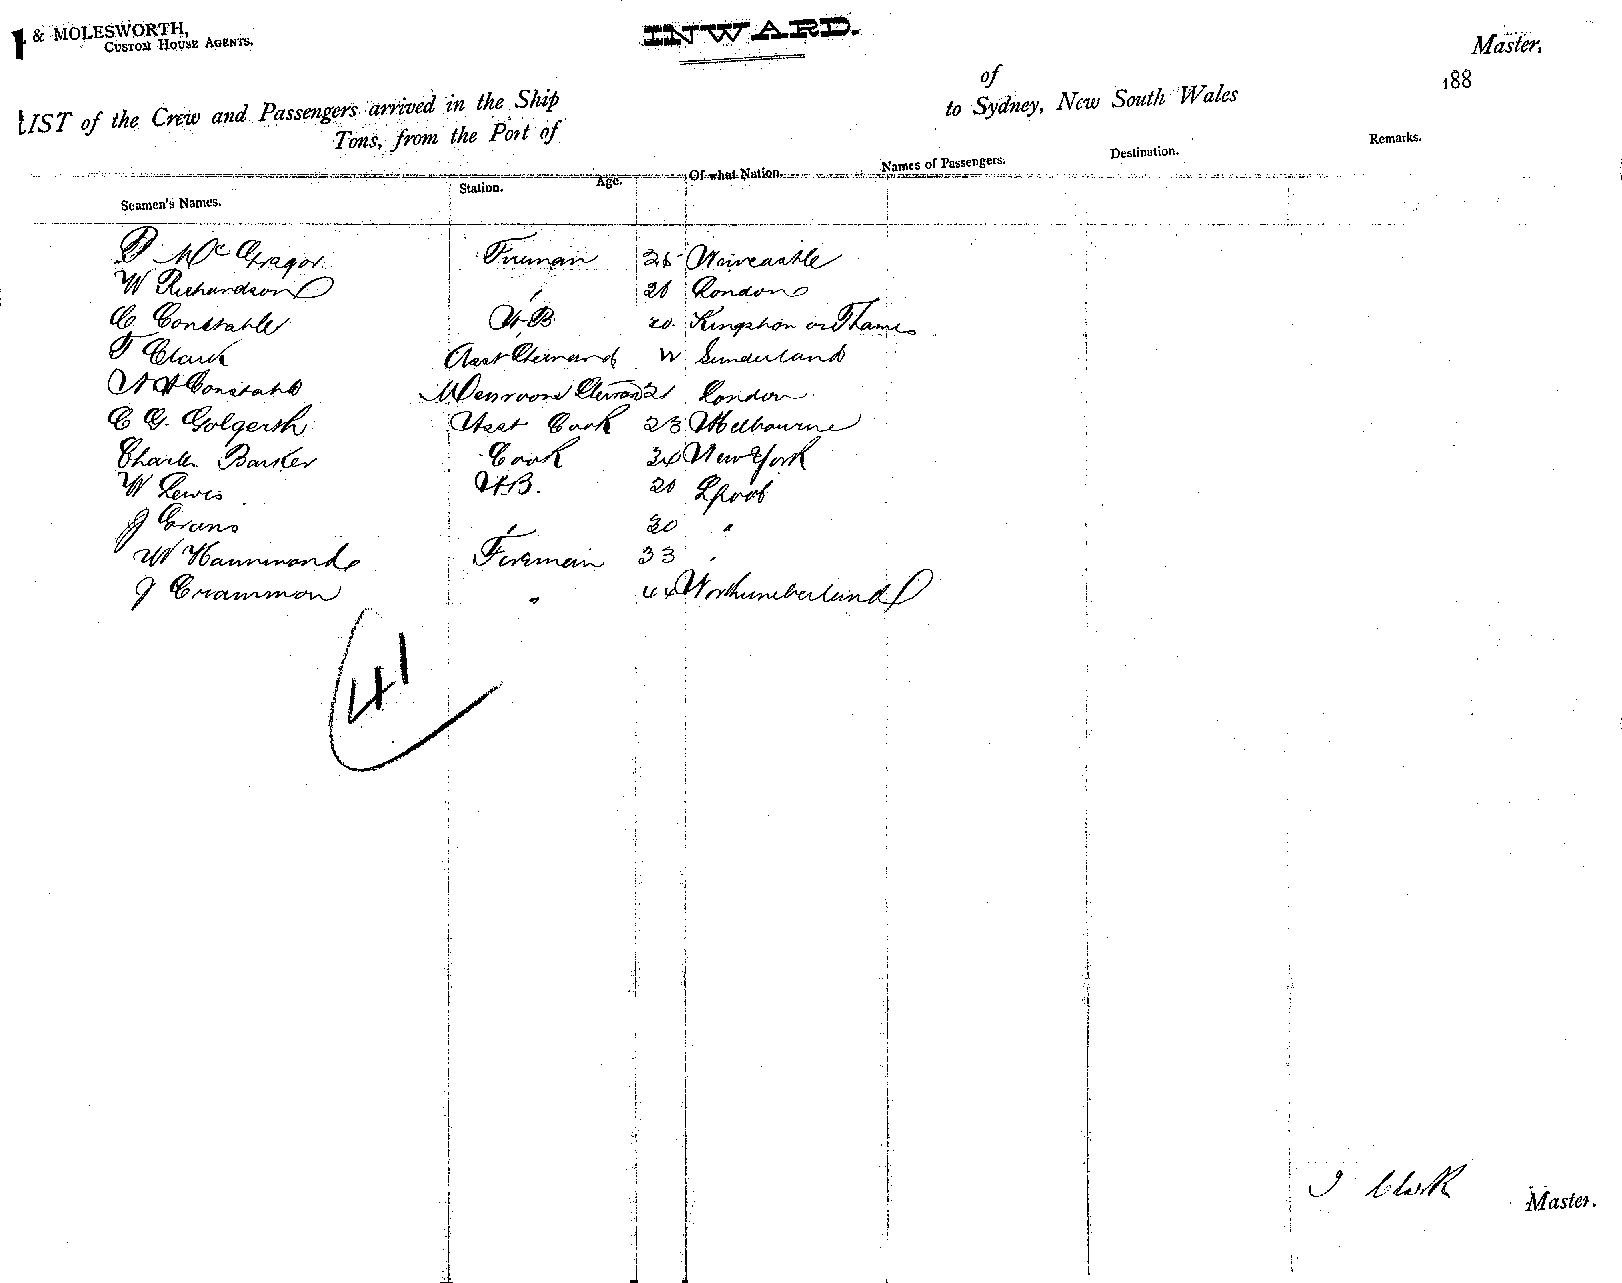 & MOLESWORTH,
CUSTOM HOUSE AGENTS.
INWARD.
LIST of the Crew and Passengers arrived in the Ship of Master,
Tons, from the Port of to Sydney, New South Wales 188
Seamen's Names. Station. Age. Of what Nation. Names of Passengers. Destination. Remarks.
D McGregor Fireman 25 Newcastle
W Richardson 〃 20 London
C Constable A.B 20 Kingston on Thames
T Clark Asst Steward Sunderland
Constable Messroom Steward 21 London
C G. Asst Cook 23 Melbourne
Charles Barker Cook 34 New York
W Lewis A.B. 20 Lpool
J Evans 〃 20 〃
W Hammond Fireman 33 〃
J Crammon 〃 44 Northumberland
41
J Clark Master.